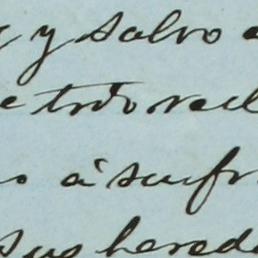 y salvo
e todo recl
o á sufr
sus hered